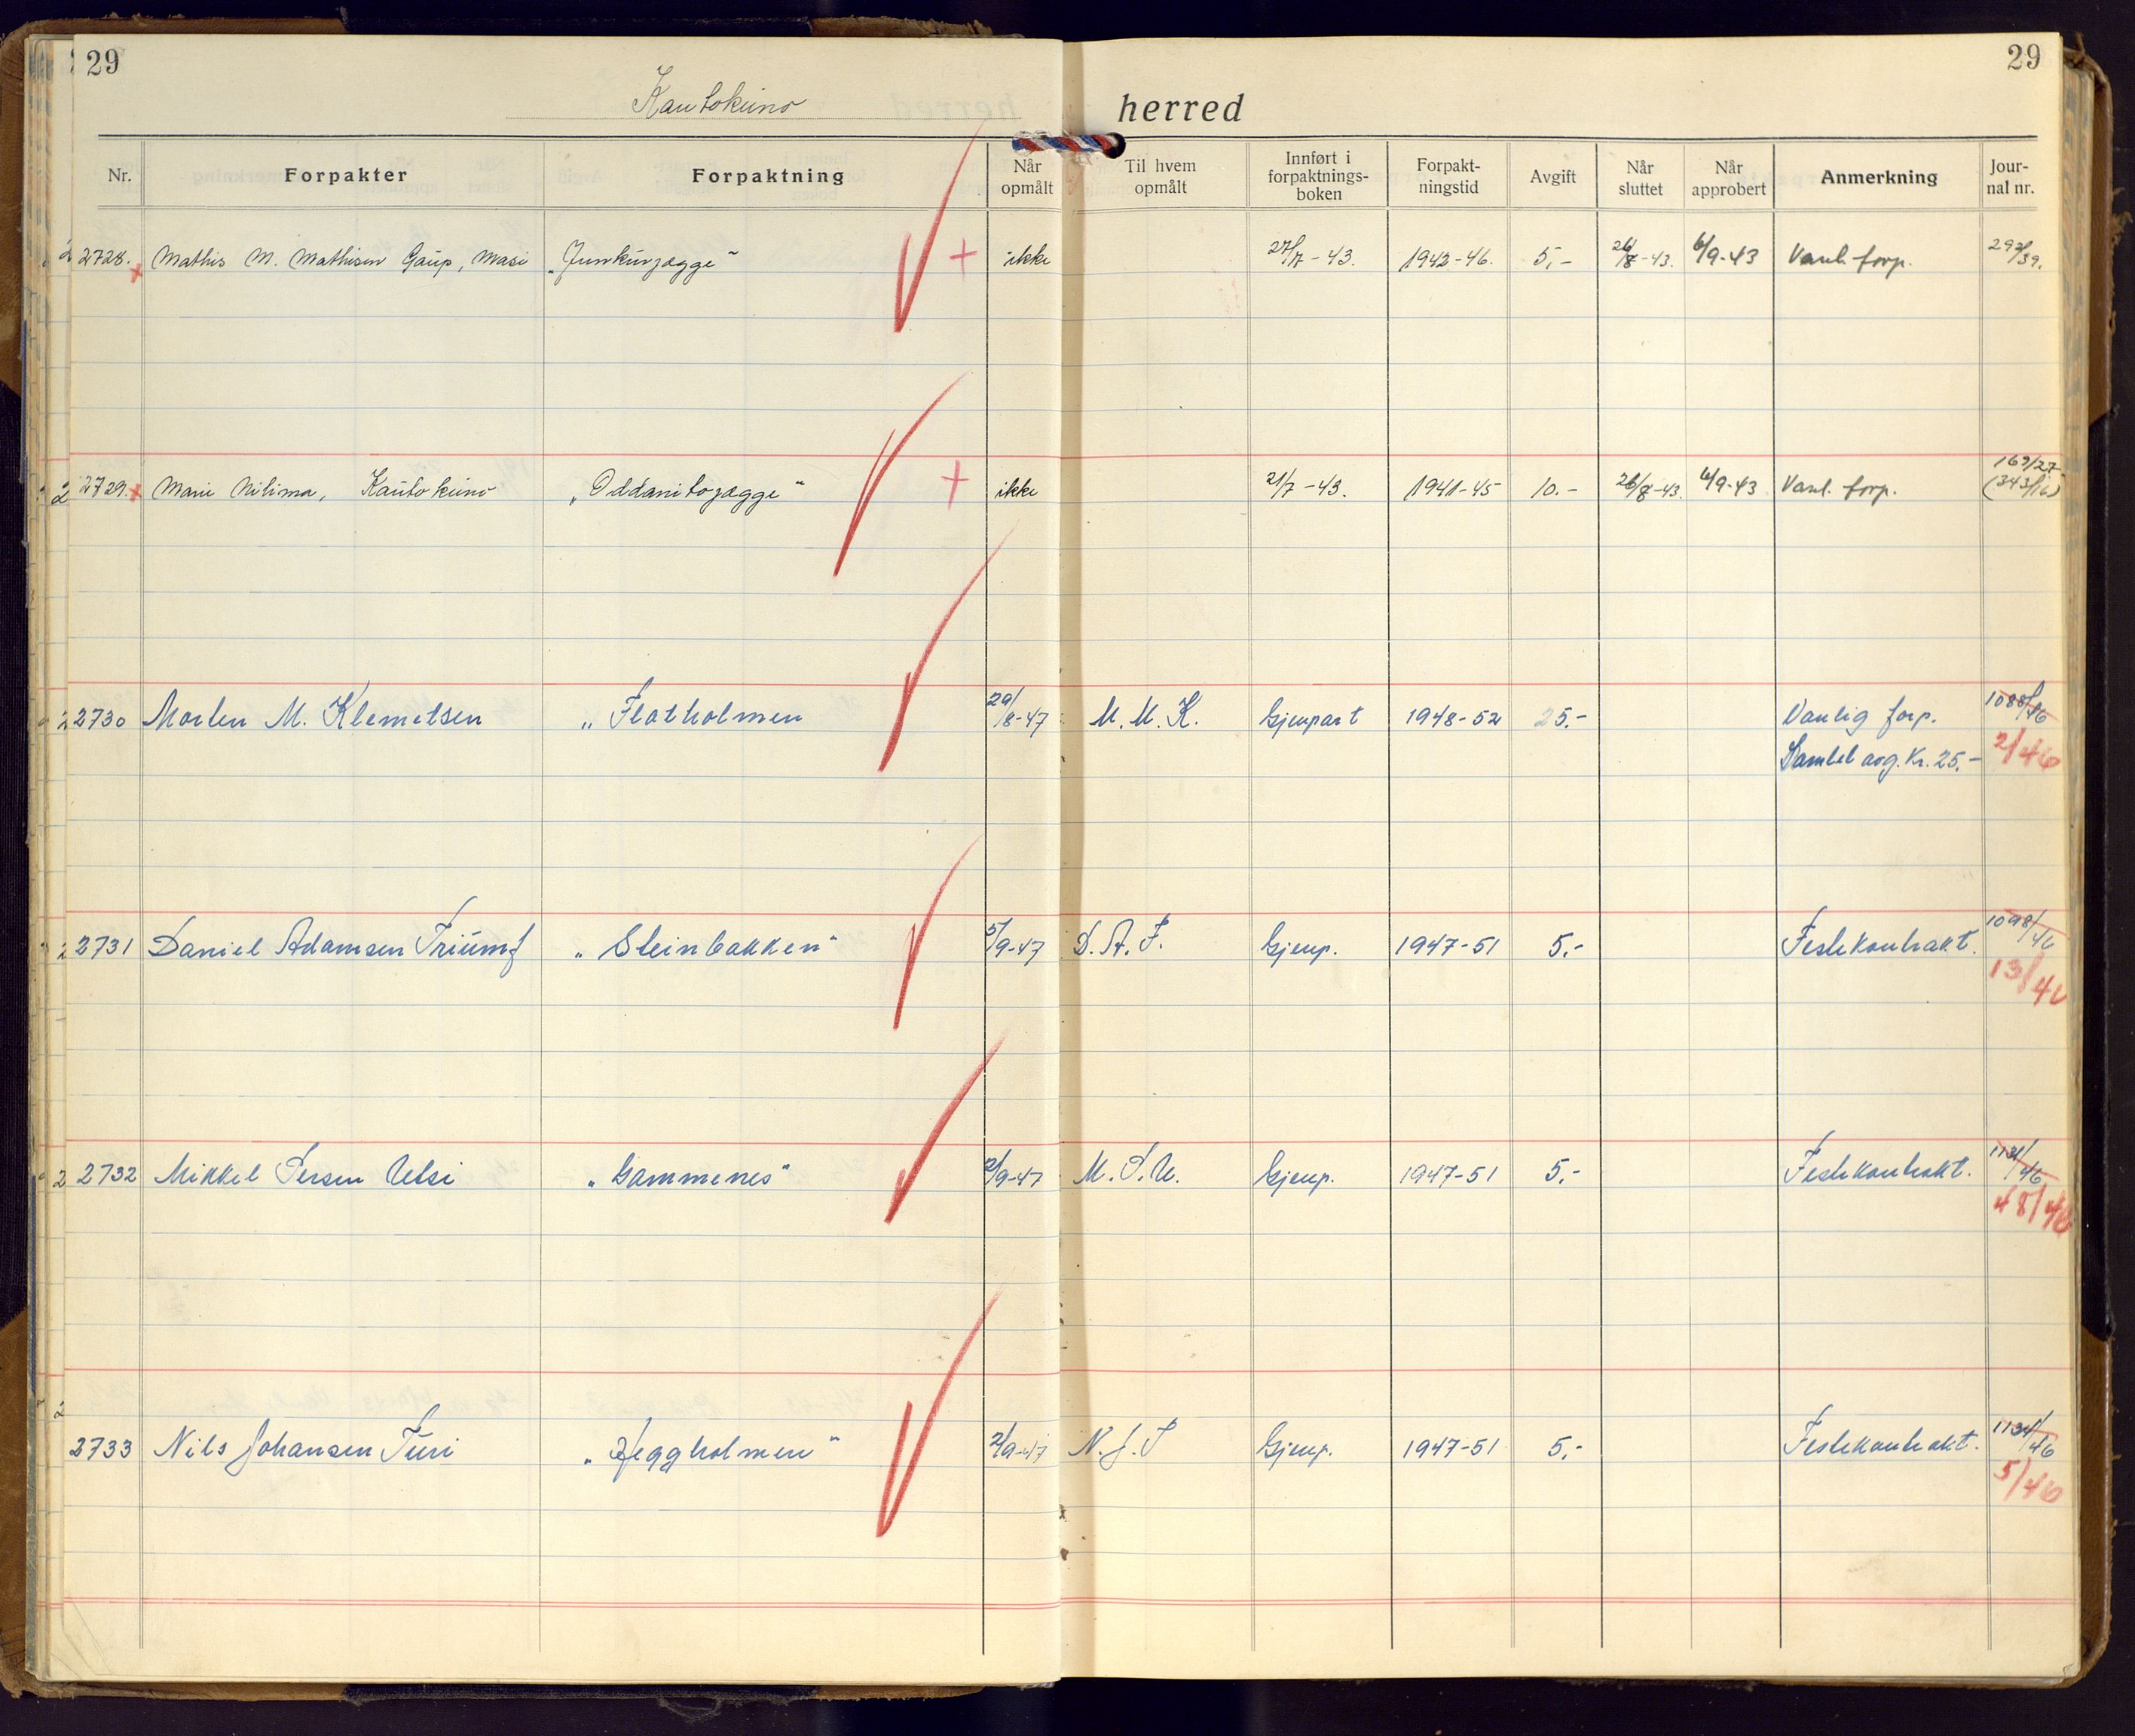 29 29
Kautokeino herred
Nr. Forpakter Forpaktning Når opmålt Til hvem opmålt Innført i forpaktnings-boken Forpakt-ningstid Avgift Når sluttet Når approbert Anmerkning Jour-nal nr.
2728. Mathis M. Mathisen Gaup, Masi „Junkurjægge“ + ikke 27/7-43. 1942-46. 5,- 26/8-43. 6/9-43 Vanl. forp. 293/39.
2729. Marie Nilima, Kautokeino „Oddanitojægge“ + ikke 21/7-43. 1941-45 10.- 26/8-43. 6/9-43 Vanl. forp. 169/27
(343/16)
2730 Morten M. Klemetsen „Flatholmen 29/8-47 M. M. K. Gjenpart 1948-52 25.- Vanlig forp. 1088/46
Samlet avg. Kr. 25.- 2/46
2731 Daniel Adamsen Triumf „Steinbakken“ 5/9-47 D. A. T. Gjenp. 1947-51 5.- Festekontrakt. 1098/46
13/46
2732 Mikkel Persen Utsi „Gammenes“ 2/9-47 M. P. U. Gjenp. 1947-51 5.- Festekontrakt. 1131/46
48/46
2733 Nils Johansen Turi „Heggholmen“ 2/9-47 N. J. T Gjenp. 1947-51 5.- Festekontrakt. 1134/46
5/46